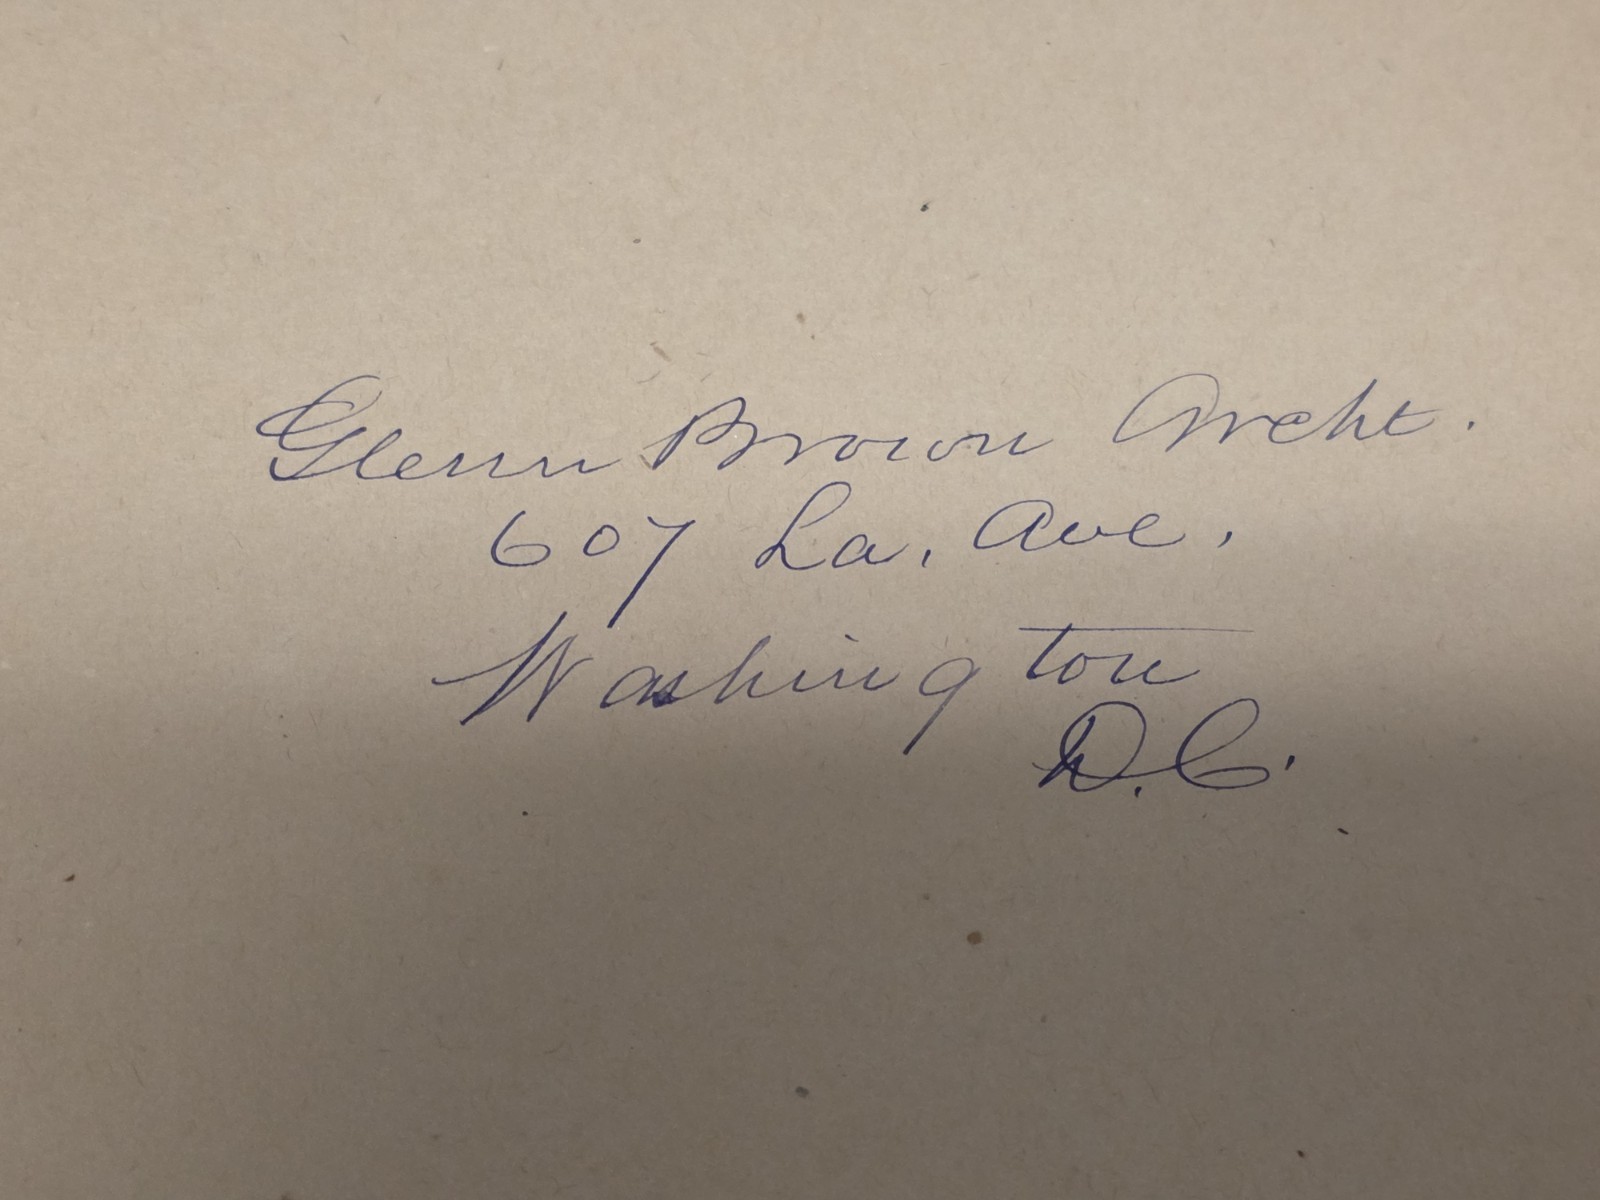 Glenn Brown Archt.
607 La. Ave.
Washington
D.C.